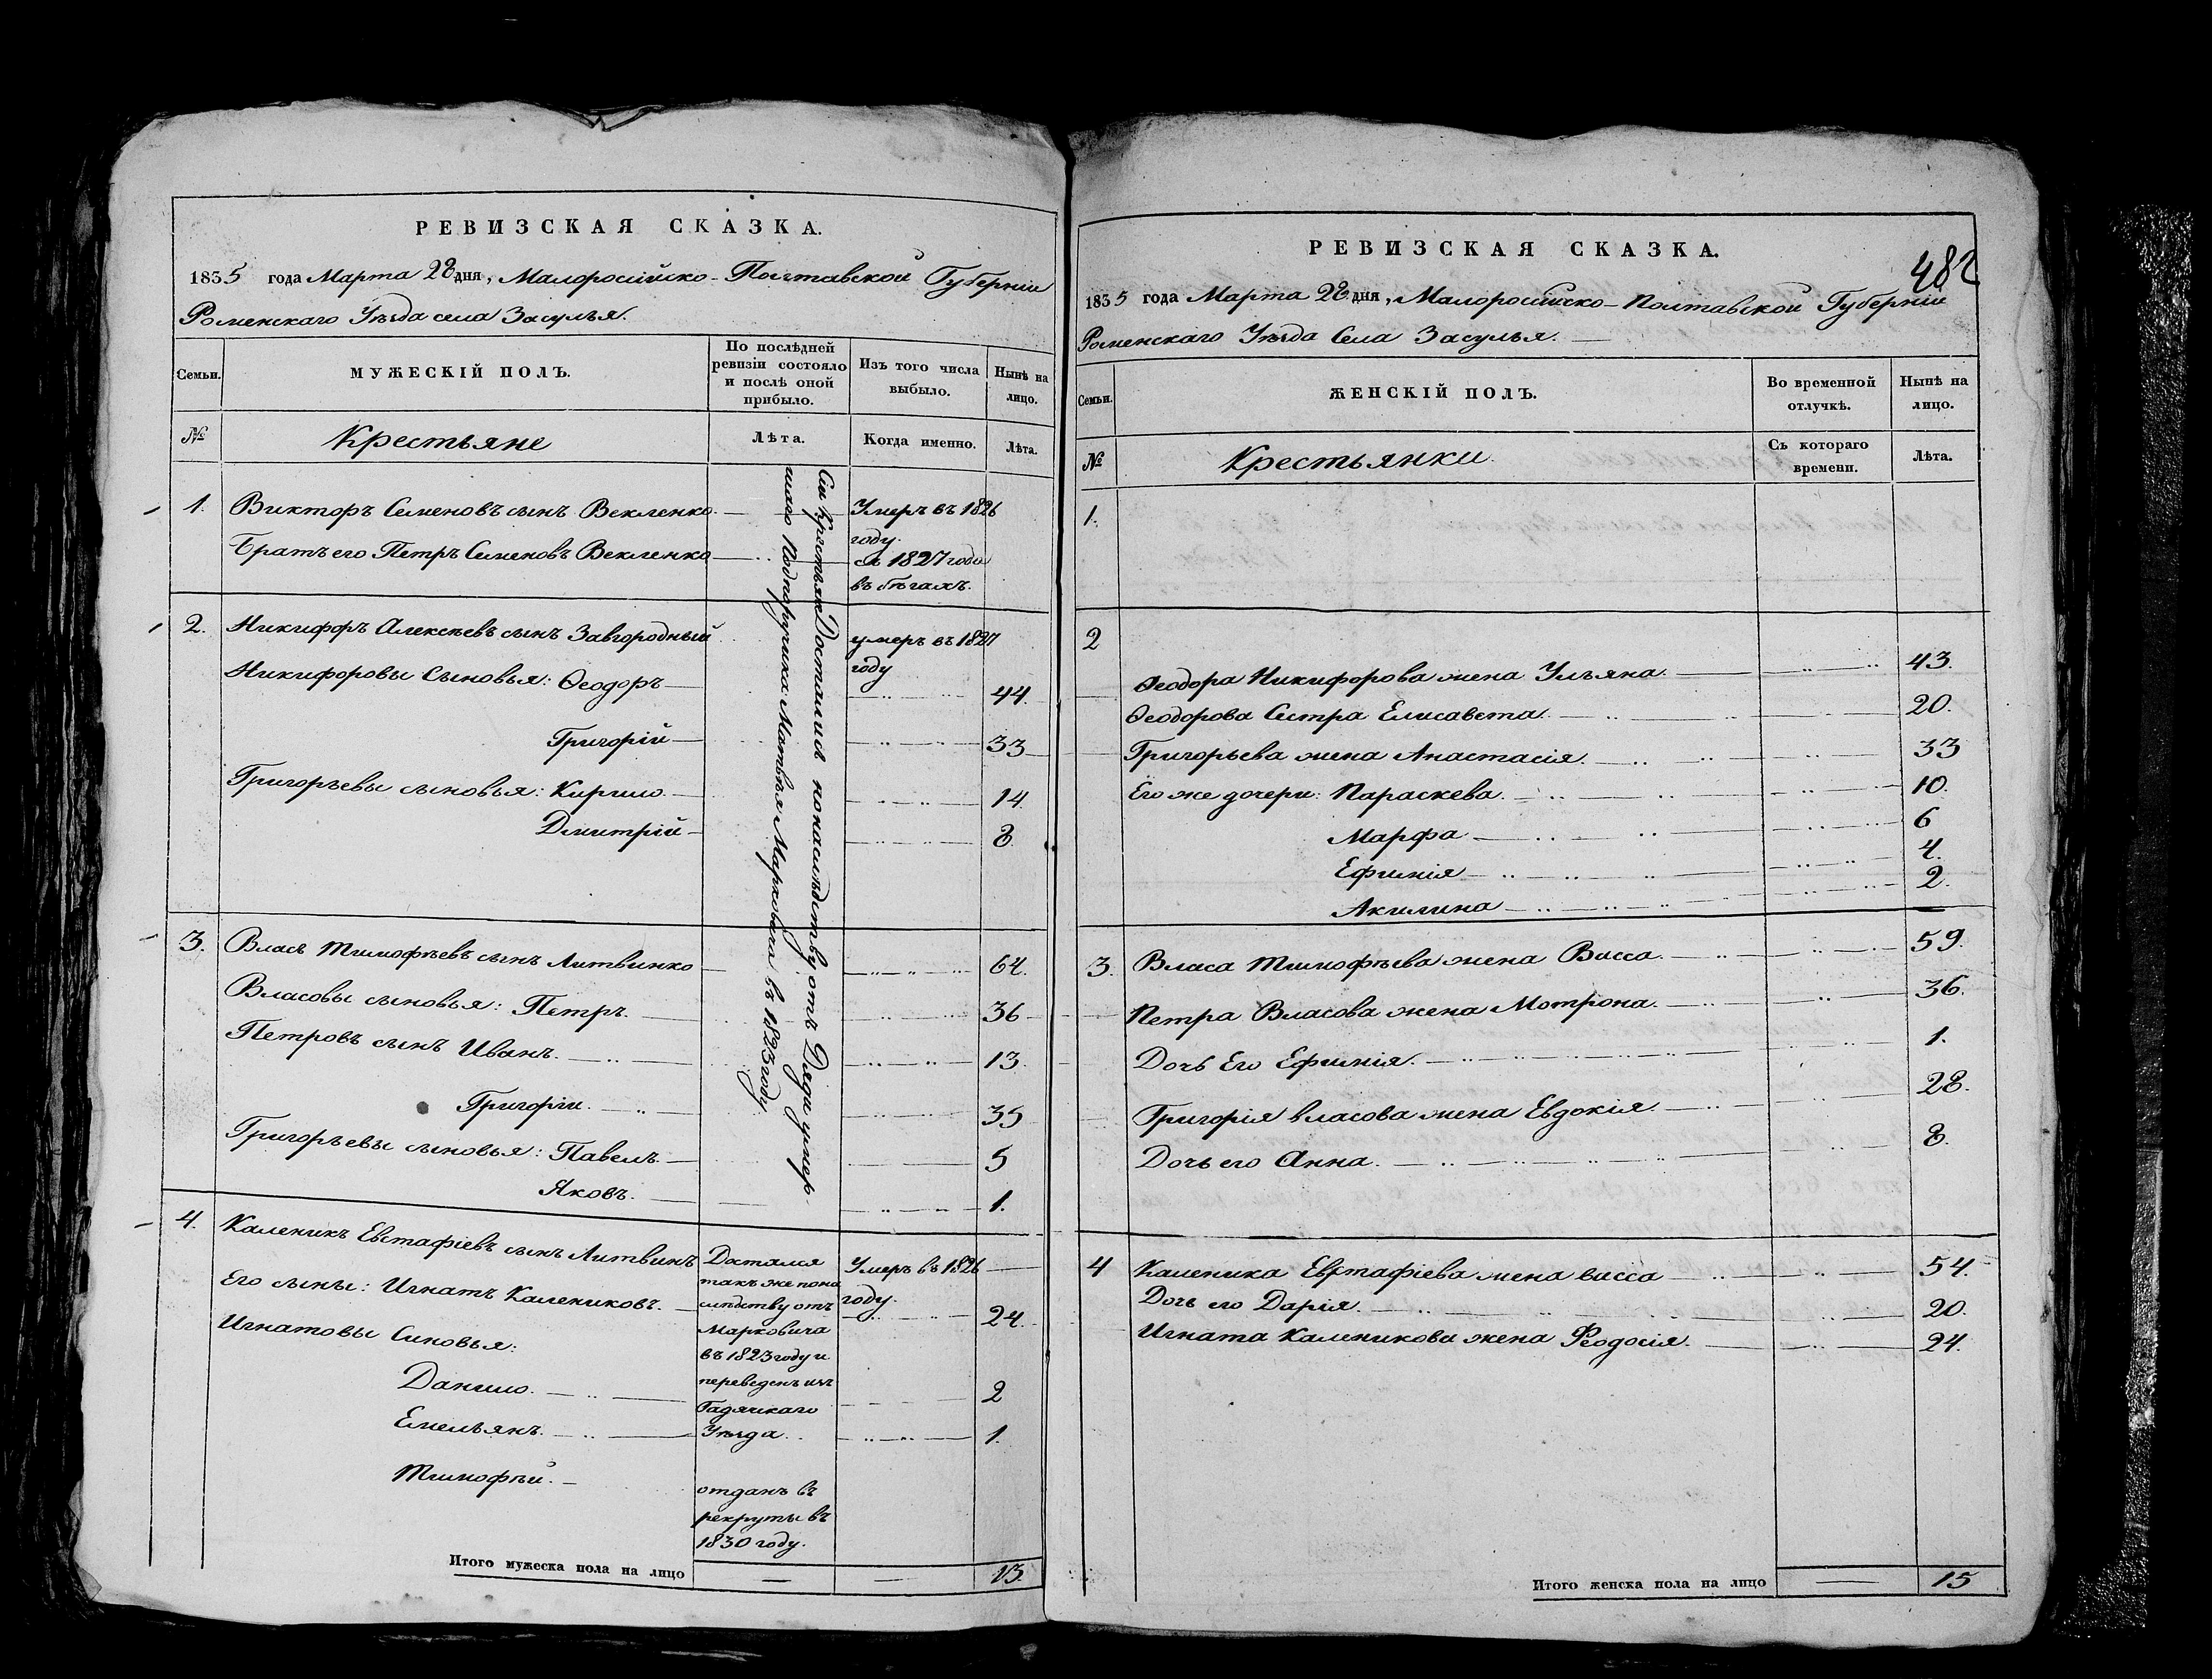 РЕВИЗСКАЯ СКАЗКА.
1835 года Марта 28 дня, Малоросійско-Полтавской Губерніи
Роменскаго Уѣзда села Засулья.
Семьи.
МУЖЕСКІЙ ПОЛЪ.
По послѣдней
ревизіи состояло
и послѣ оной
прибыло.
Изъ того числа
выбыло.
Нынѣ на
лицо.
№
Крестьяне
Лѣта.
Когда именно.
Лѣта.
Сіи Крестьяне Достались понаслѣдству отъ Деда умер-
шаго Подпоручика Матвѣя Марковича въ 1823 году
1. Викторъ Семеновъ сынъ Векленко. Умеръ въ 1826
году.
Братъ его Петръ Семеновъ Векленко съ 1827 года
въ бѣгахъ.
2. Никифоръ Алексѣевъ сынъ Завгородный умеръ въ 1827
году
Никифоровы Сыновья: Ѳеодоръ 44.
Григорій 33
Григорьевы сыновья: Кирило 14
Дмитрій 8
3. Власъ Тимофѣевъ сынъ Литвинко 64.
Власовы сыновья: Петръ. 36
Петровъ сынъ Иванъ. 13
Григоріи. 35
Григорьевы сыновья: Павелъ 5
Яковъ. 1.
4. Каленикъ Евстафіевъ сынъ Литвинъ Умеръ въ 1826
году.
Его сыны: Игнатъ Калениковъ. 24.
Игнатовы Сыновья:
Данило. 2
Емельянъ. 1.
Тимофѣй.
Достался
такъ же пона
слѣдству отъ
Марковича
въ 1823 году и
переведенъ изъ
Гадячскаго
Уѣзда.
отданъ въ
рекруты въ
1830 году.
Итого мужеска пола на лицо — — 13.
482
РЕВИЗСКАЯ СКАЗКА.
1835 года Марта 28 дня, Малоросійско-Полтавской Губерніи
Роменскаго Уѣзда Села Засулья.
Семьи.
ЖЕНСКІЙ ПОЛЪ.
Во временной
отлучкѣ.
Нынѣ на
лицо.
№
Крестьянки.
Съ котораго
времени.
Лѣта.
1.
2
Ѳеодора Никифорова жена Ульяна. 43.
Ѳеодорова Сестра Елисавета. 20.
Григорьева жена Анастасія. 33
Его же дочери: Параскева. 10.
Марфа 6
Ефимія 4.
Акилина 2.
3. Власа Тимофѣева жена Васса. 59.
Петра Власова жена Мотрона. 36.
Дочь Его Ефимія. 1.
Григорія Власова жена Евдокія. 28.
Дочь его Анна. 8.
4 Каленика Евстафіева жена васса 54.
Дочь его Дарія. 20.
Игната Каленикова жена Ѳеодосія. 24.
Итого женска пола на лицо — 15